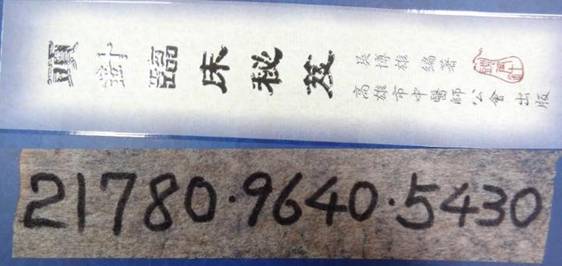 頭針臨床秘笈
吳博雄 編著
高雄市中醫師公會 出版
21780·9640·5430